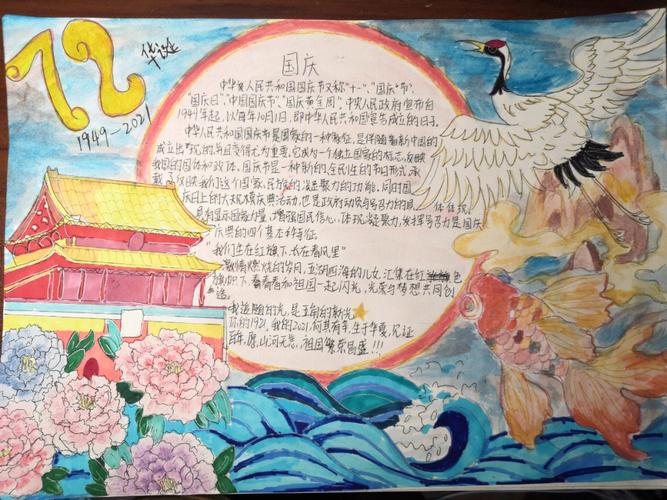 72
华诞
1949-2021
国庆
中华人民共和国国庆节又称"十一"、"国庆节"、
"国庆日"、"中国国庆节"、"国庆黄金周"。中央人民政府宣布自
1949年起,以每年10月1日,即中华人民共和国宣告成立的日子。
中华人民共和国国庆节是国家的一种象征,是伴随着新中国的
成立出现的,并且变得尤为重要。它成为一个独立国家的标志,反映
我国的国体和政体。国庆节是一种新的、全民性的节日形式,承
载了反映我们这个国家、民族的凝聚力的功能。同时国
庆日上的大规模庆典活动,也是政府动员与号召力的具 体体现。
具有显示国家力量、增强国民信心,体现凝聚力,发挥号召力是国庆
庆典的四个基本特征。
"我们生在红旗下,长在春风里"
激情燃烧的岁月,五湖四海的儿女,汇集在红 色
旗帜下,青春和祖国一起闪光,光荣与梦想共同创
造。
我追随的光,是五角的新光
你的1921,我的2021,何其有幸,生于华夏,见证
百年,愿山河无恙,祖国繁荣昌盛!!!